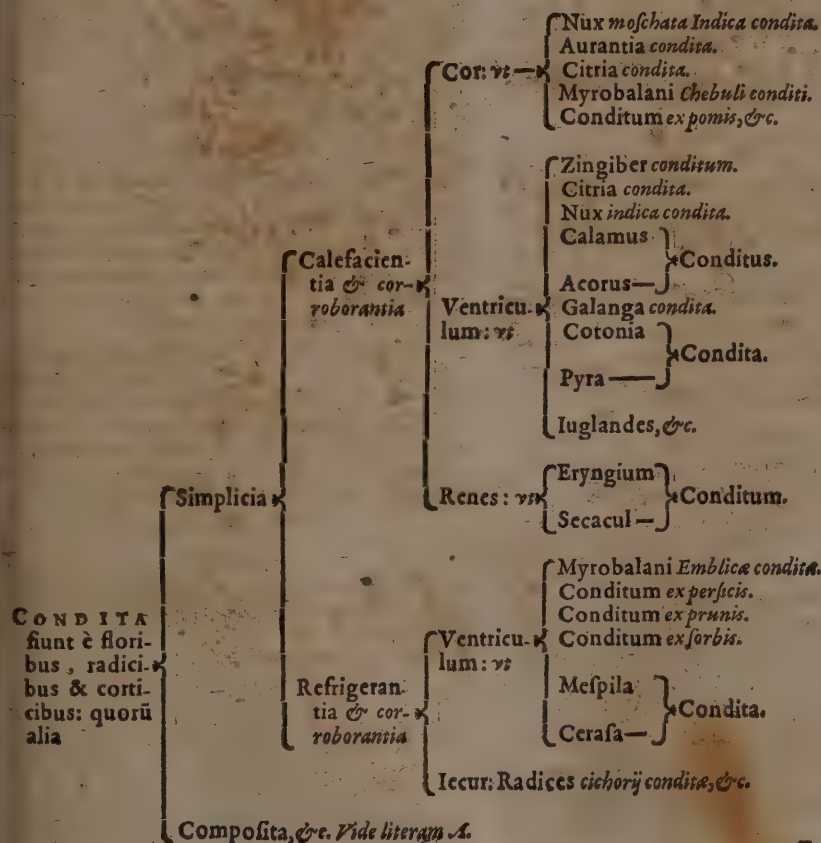 CONDITA
fiunt è flori-
bus, radici-
bus & corti-
cibus: quorū
alia
Simplicia
Calefacien-
tia & cor-
roborantia
Cor: vt —
Nux moſchata Indica condita.
Aurantia condita.
Citria condita.
Myrobalani Chebuli conditi.
Conditum ex pomis, &c.
Ventricu-
lum: vt
Zingiber conditum.
Citria condita.
Nux indica condita.
Calamus
Acorus—
Conditus.
Galanga condita.
Cotonia
Pyra —
Condita.
Iuglandes, &c.
Renes: vt
Eryngium
Secacul —
Conditum.
Refrigeran-
tia & cor-
roborantia
Ventricu-
lum: vt
Myrobalani Emblicæ conditæ.
Conditum ex perſicis.
Conditum ex prunis.
Conditum ex ſorbis.
Meſpila
Ceraſa—
Condita.
Iecur: Radices cichorij conditæ, &c.
Compoſita, &c. Vide literam A.